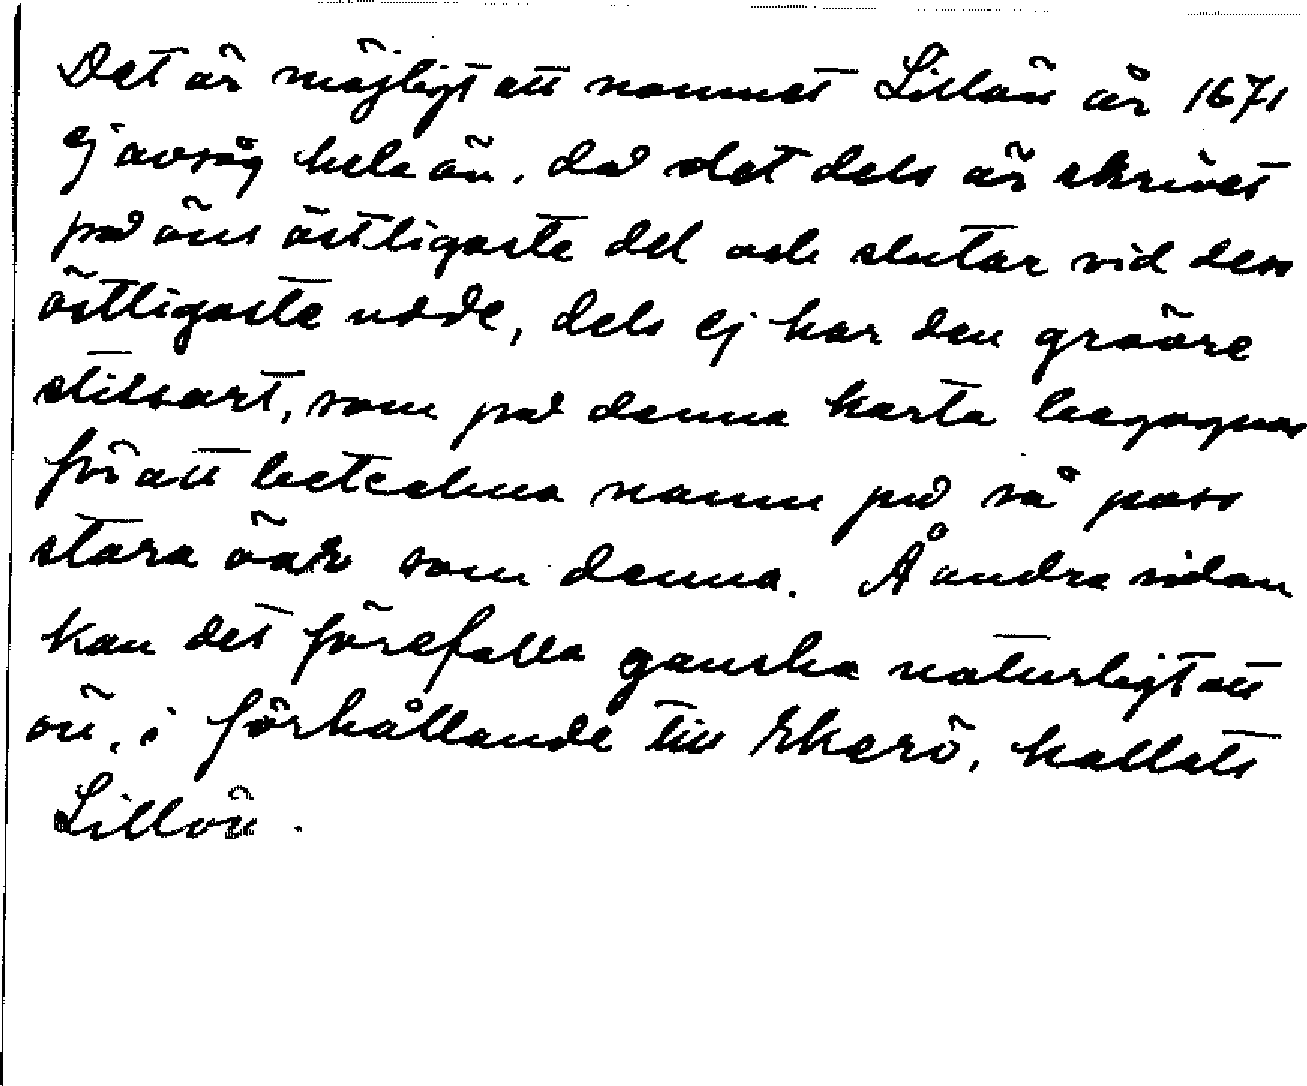 Det är möjligt att namnet Lillön år 1671
ej avsåg hela ön, då det dels är skrivet
på öns östligaste del och slutar vid dess
östligaste udde, dels ej har den grövre
stilsart, som på denna karta begagnas
för att beteckna namn på så pass
stora öar som denna. Å andra sidan
kan det förefalla ganska naturligt att
ön, i förhållande till Ekerö, kallats
Lillön.